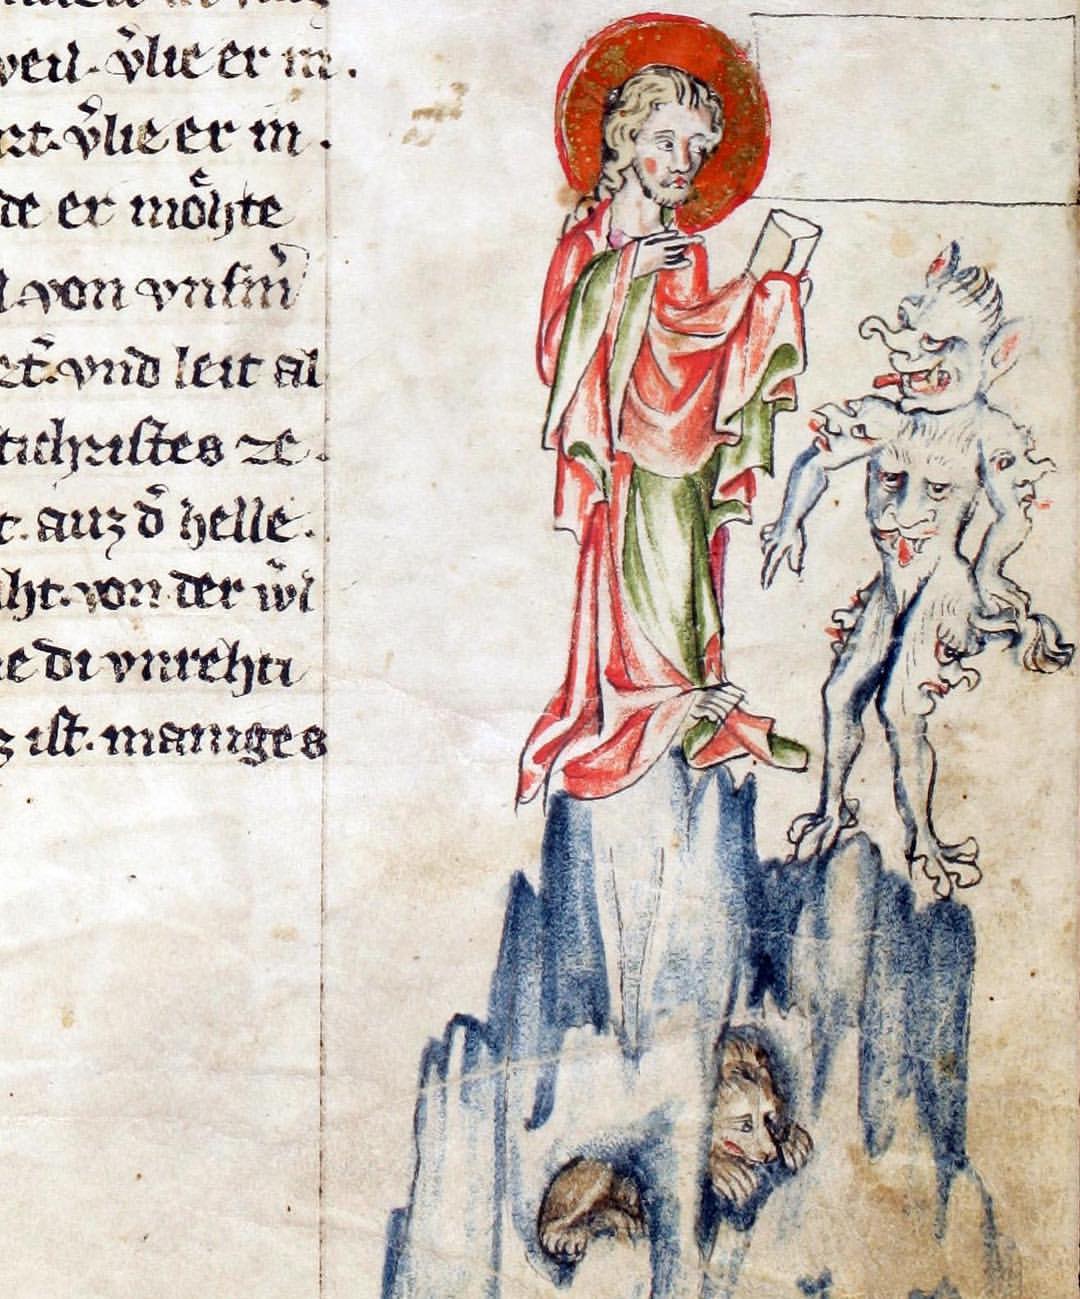 weil. v̄lie er in.
rt. v̄lie er in.
de er moͤhte
von vnſm̄
vnd leit al
tichriſtes ze.
t. auz d̄ helle.
ht. von der w̄l
e di vnrehti
z iſt. maniges